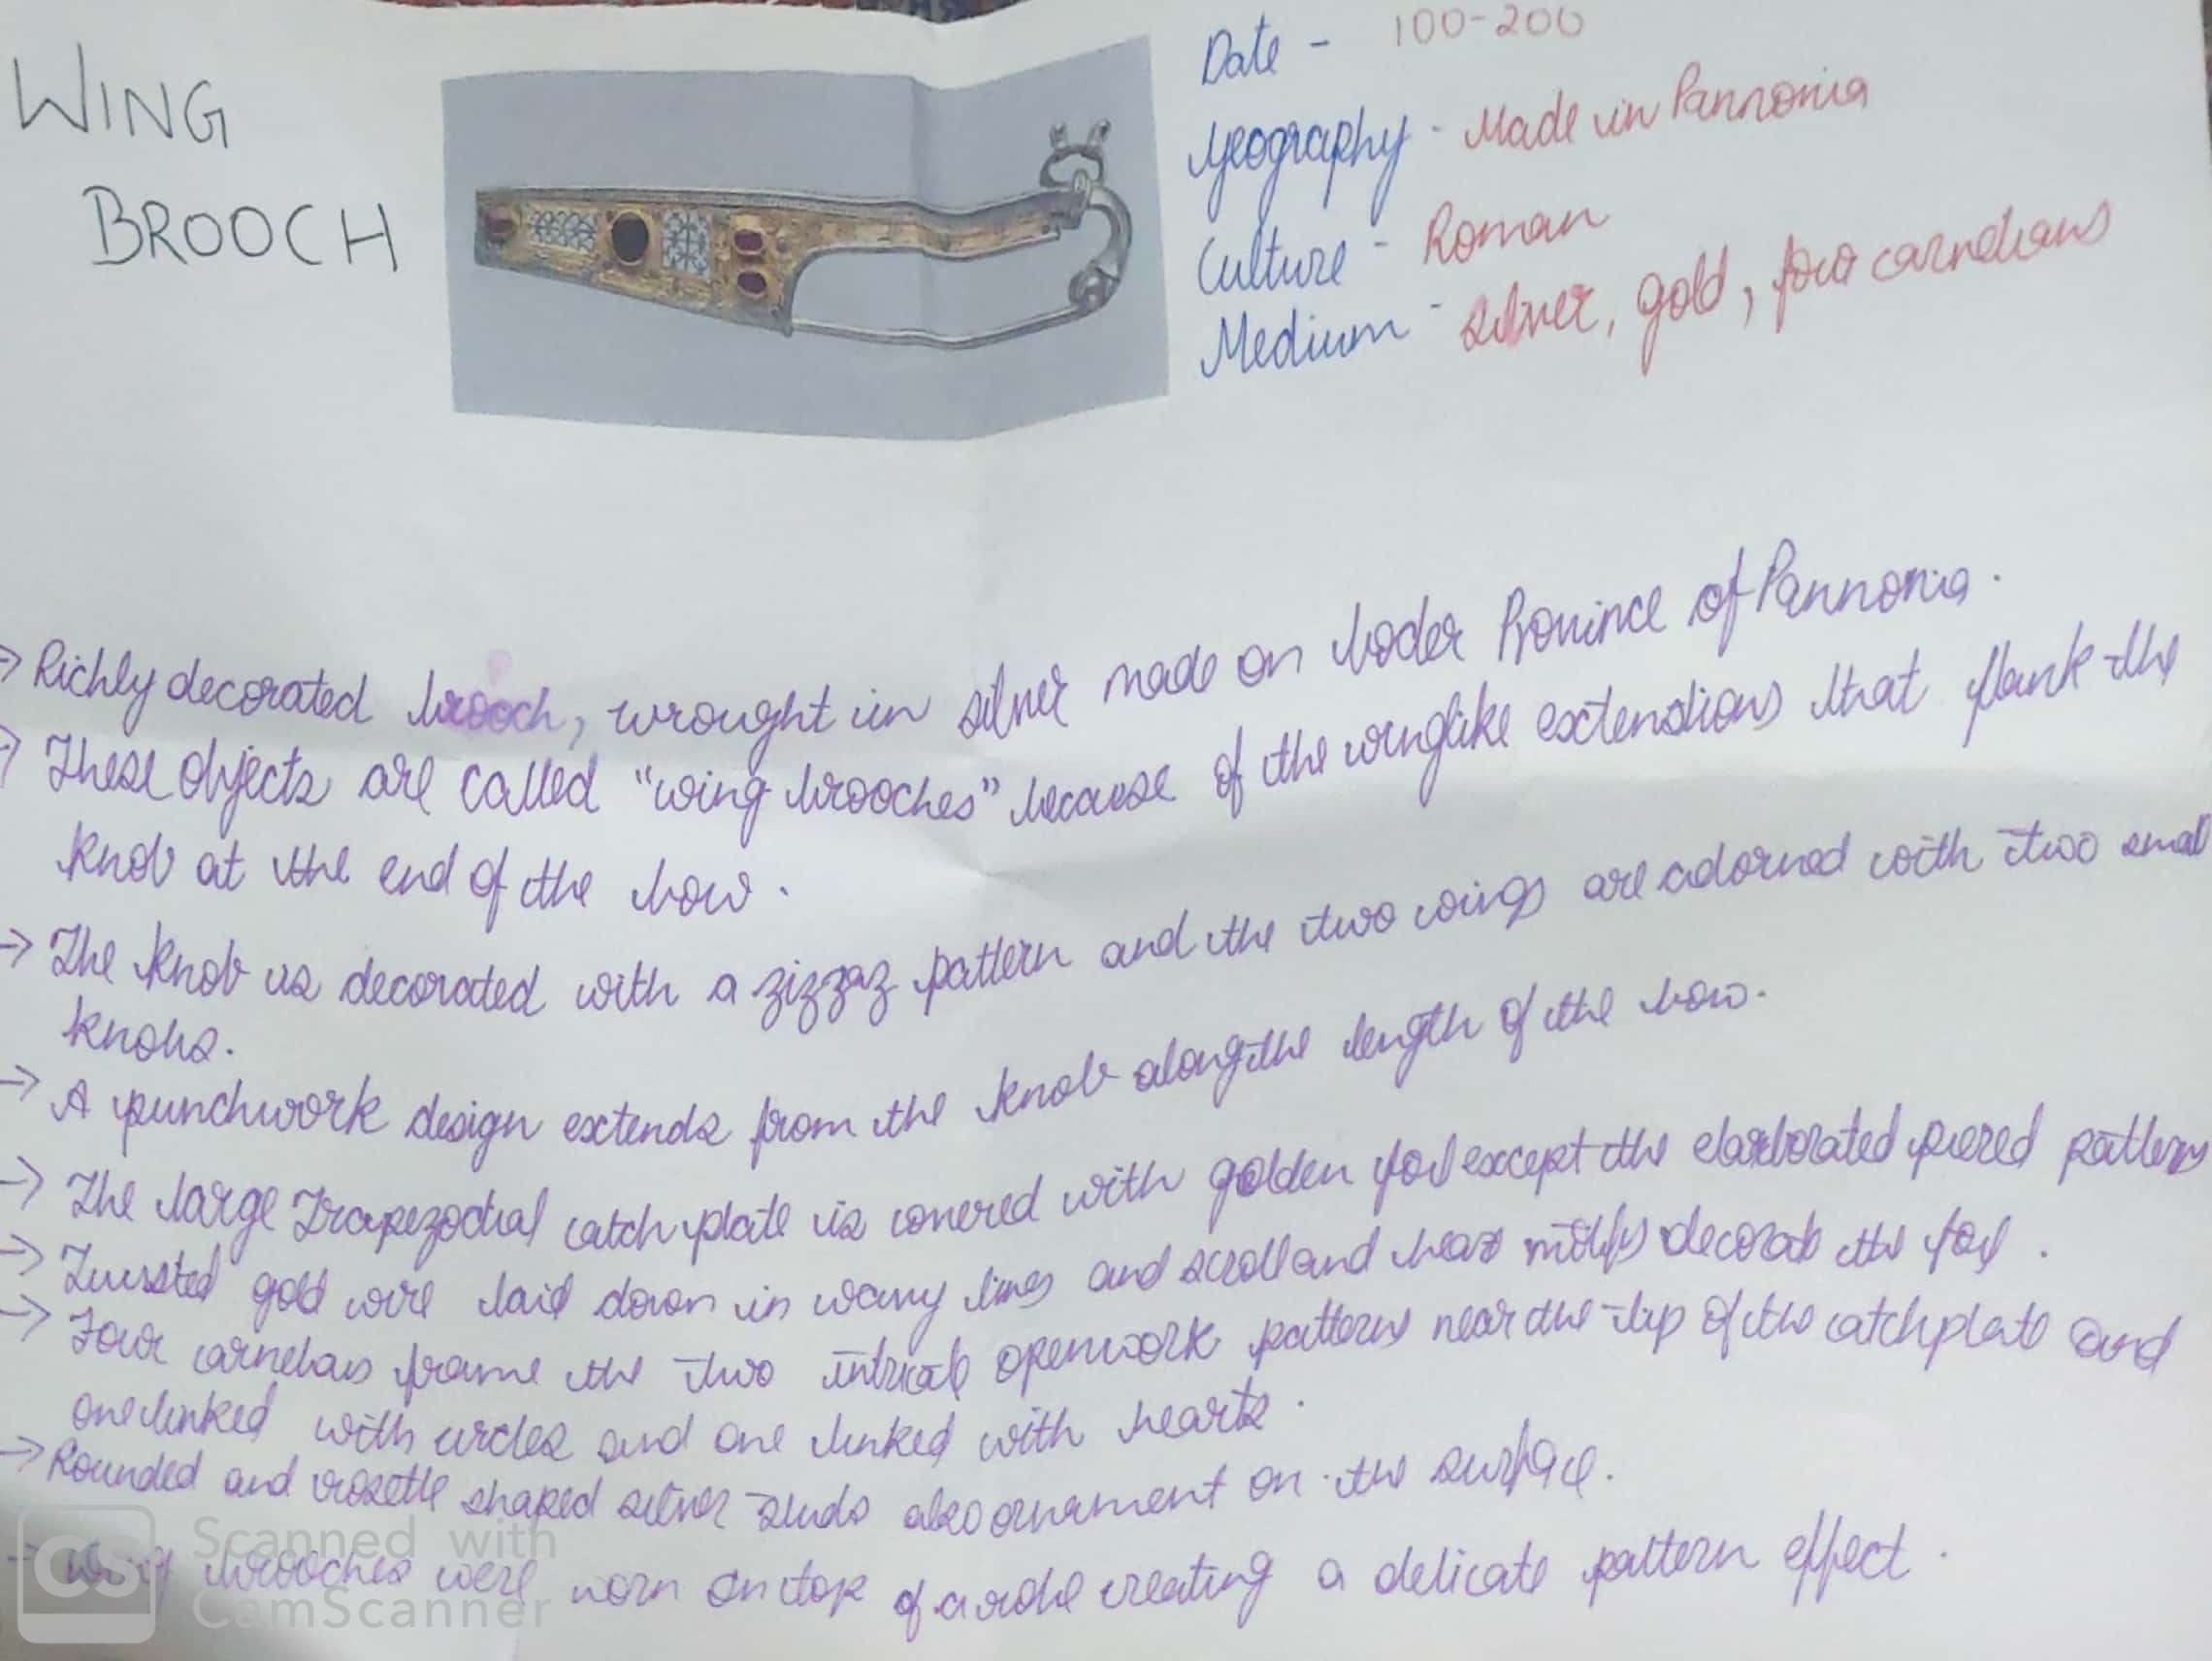 WING
BROOCH
Date - 100-200
Geography - Made in Pannonia
Culture - Roman
Medium - silver, gold, four carnelians
→ Richly decorated brooch, wrought in silver made on boder Province of Pannonia.
→ These objects are called "wing brooches" because of the winglike extensions that flank the
knob at the end of the bow.
→ The knob is decorated with a zizzaz pattern and the two wings are adorned with two small
knobs.
→ A punchwork design extends from the knob along the length of the bow.
→ The large Trapezodial catch plate is covered with golden foil except the elarborated piered patterns
→ Twisted gold wire laid down in wavy lines and scroll and hear motifs decorate the foil.
→ Four carnelians frame the two intricate openwork patterns near the tip of the catchplate and
one linked with circles and one linked with hearts.
→ Rounded and rosette shaped silver studs also ornament on the surface.
→ Wing brooches were worn on top of a robe creating a delicate pattern effect.
CS Scanned with
CamScanner